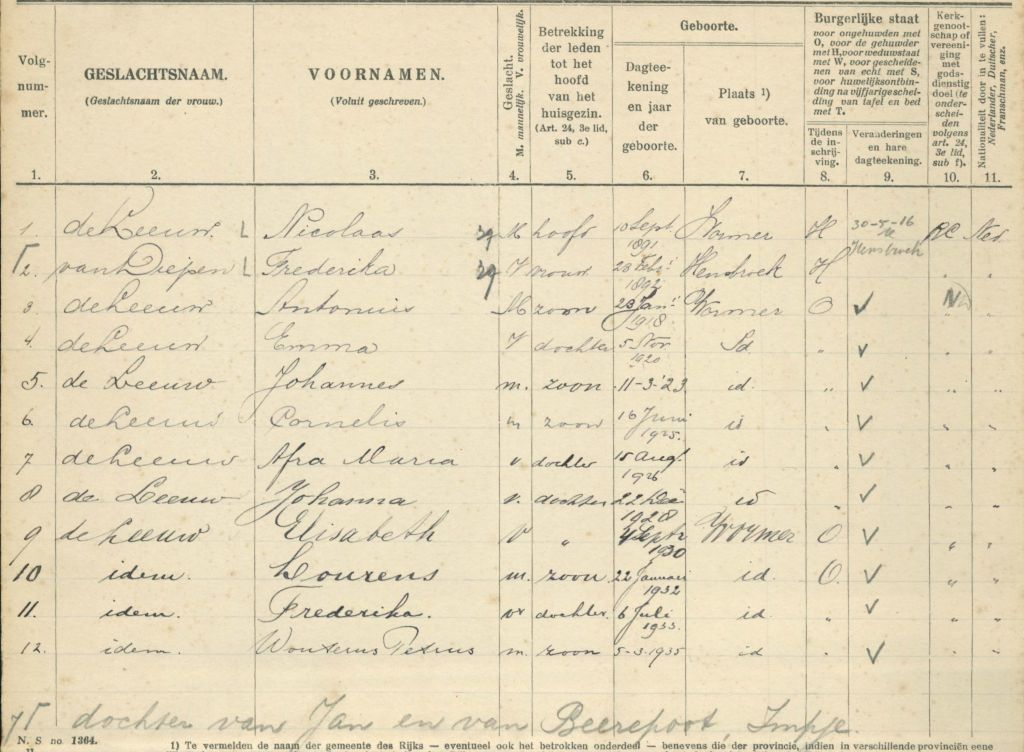 Volg-
num-
mer.
GESLACHTSNAAM.
(Geslachtsnaam der vrouw.)
VOORNAMEN.
(Voluit geschreven.)
Geslacht.
M. mannelijk. V. vrouwelijk.
Betrekking
der leden
tot het
hoofd
van het
huisgezin.
(Art. 24, 3e lid,
sub c.)
Geboorte.
Dagtee-
kening
en jaar
der
geboorte.
Plaats 1)
van geboorte.
Burgerlijke staat
voor ongehuwden met
O, voor de gehuwden
met H, voor weduwstaat
met W, voor gescheide-
nen van echt met S,
voor huwelijksontbin-
ding na vijfjarigeschei-
ding van tafel en bed
met T.
Tijdens
de in-
schrij-
ving.
Veranderingen
en hare
dagteekening.
Kerk-
genoot-
schap of
vereeni-
ging
met
gods-
dienstig
doel (te
onder-
schei-
den
volgens
art. 24,
3e lid,
sub f).
Nationaliteit door in te vullen:
Nederlander, Duitscher,
Franschman, enz.
1. 2. 3. 4. 5. 6. 7. 8. 9. 10. 11.
1. de Leeuw. L Nicolaas 29 M hoofd 10 Sept 1891 Wormer H 30-5-16 Hensbroek RC Ned.
2. van Diepen L Frederika 29 V vrouw 23 Febr 1892 Hensbroek H " "
3 de Leeuw Antonius M zoon 23 Jan. 1918 Wormer O ✓ " "
4. de Leeuw Emma V dochter 5 Nov. 1920 Id " ✓ " "
5. de Leeuw Johannes m. zoon 11-3-'23 id. " ✓ " "
6. de Leeuw Cornelis m zoon 16 Juni 1925. id " ✓ " "
7 de Leeuw Afra Maria v. dochter 15 Aug. 1926 id " ✓ " "
8 de Leeuw Johanna v. dochter 22 Dec 1928 id " ✓ " "
9 de Leeuw Elisabeth V " 4 Septr 1930 Wormer O ✓ " "
10 idem. Lourens m. zoon 22 Januari 1932 id. O. ✓ " "
11. idem. Frederika. vr dochter 6 Juli 1933. id. " ✓ " "
12. idem. Wouterus Petrus m. zoon 5-3-1935 id " ✓ " "
dochter van Jan en van Beerepoot, Impje
N. S. no. 1364.
1) Te vermelden de naam der gemeente des Rijks — eventueel ook het betrokken onderdeel — benevens die der provincie, indien in verschillende provinciën eene